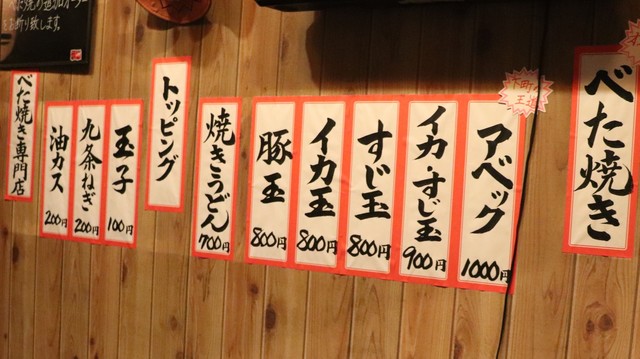 べた焼き
アベック
1000円
イカ・すじ玉
900円
すじ玉
800円
イカ玉
800円
豚玉
800円
焼きうどん
700円
トッピング
玉子
100円
九条ねぎ
200円
油カス
200円
べた焼き専門店
お断り致します。